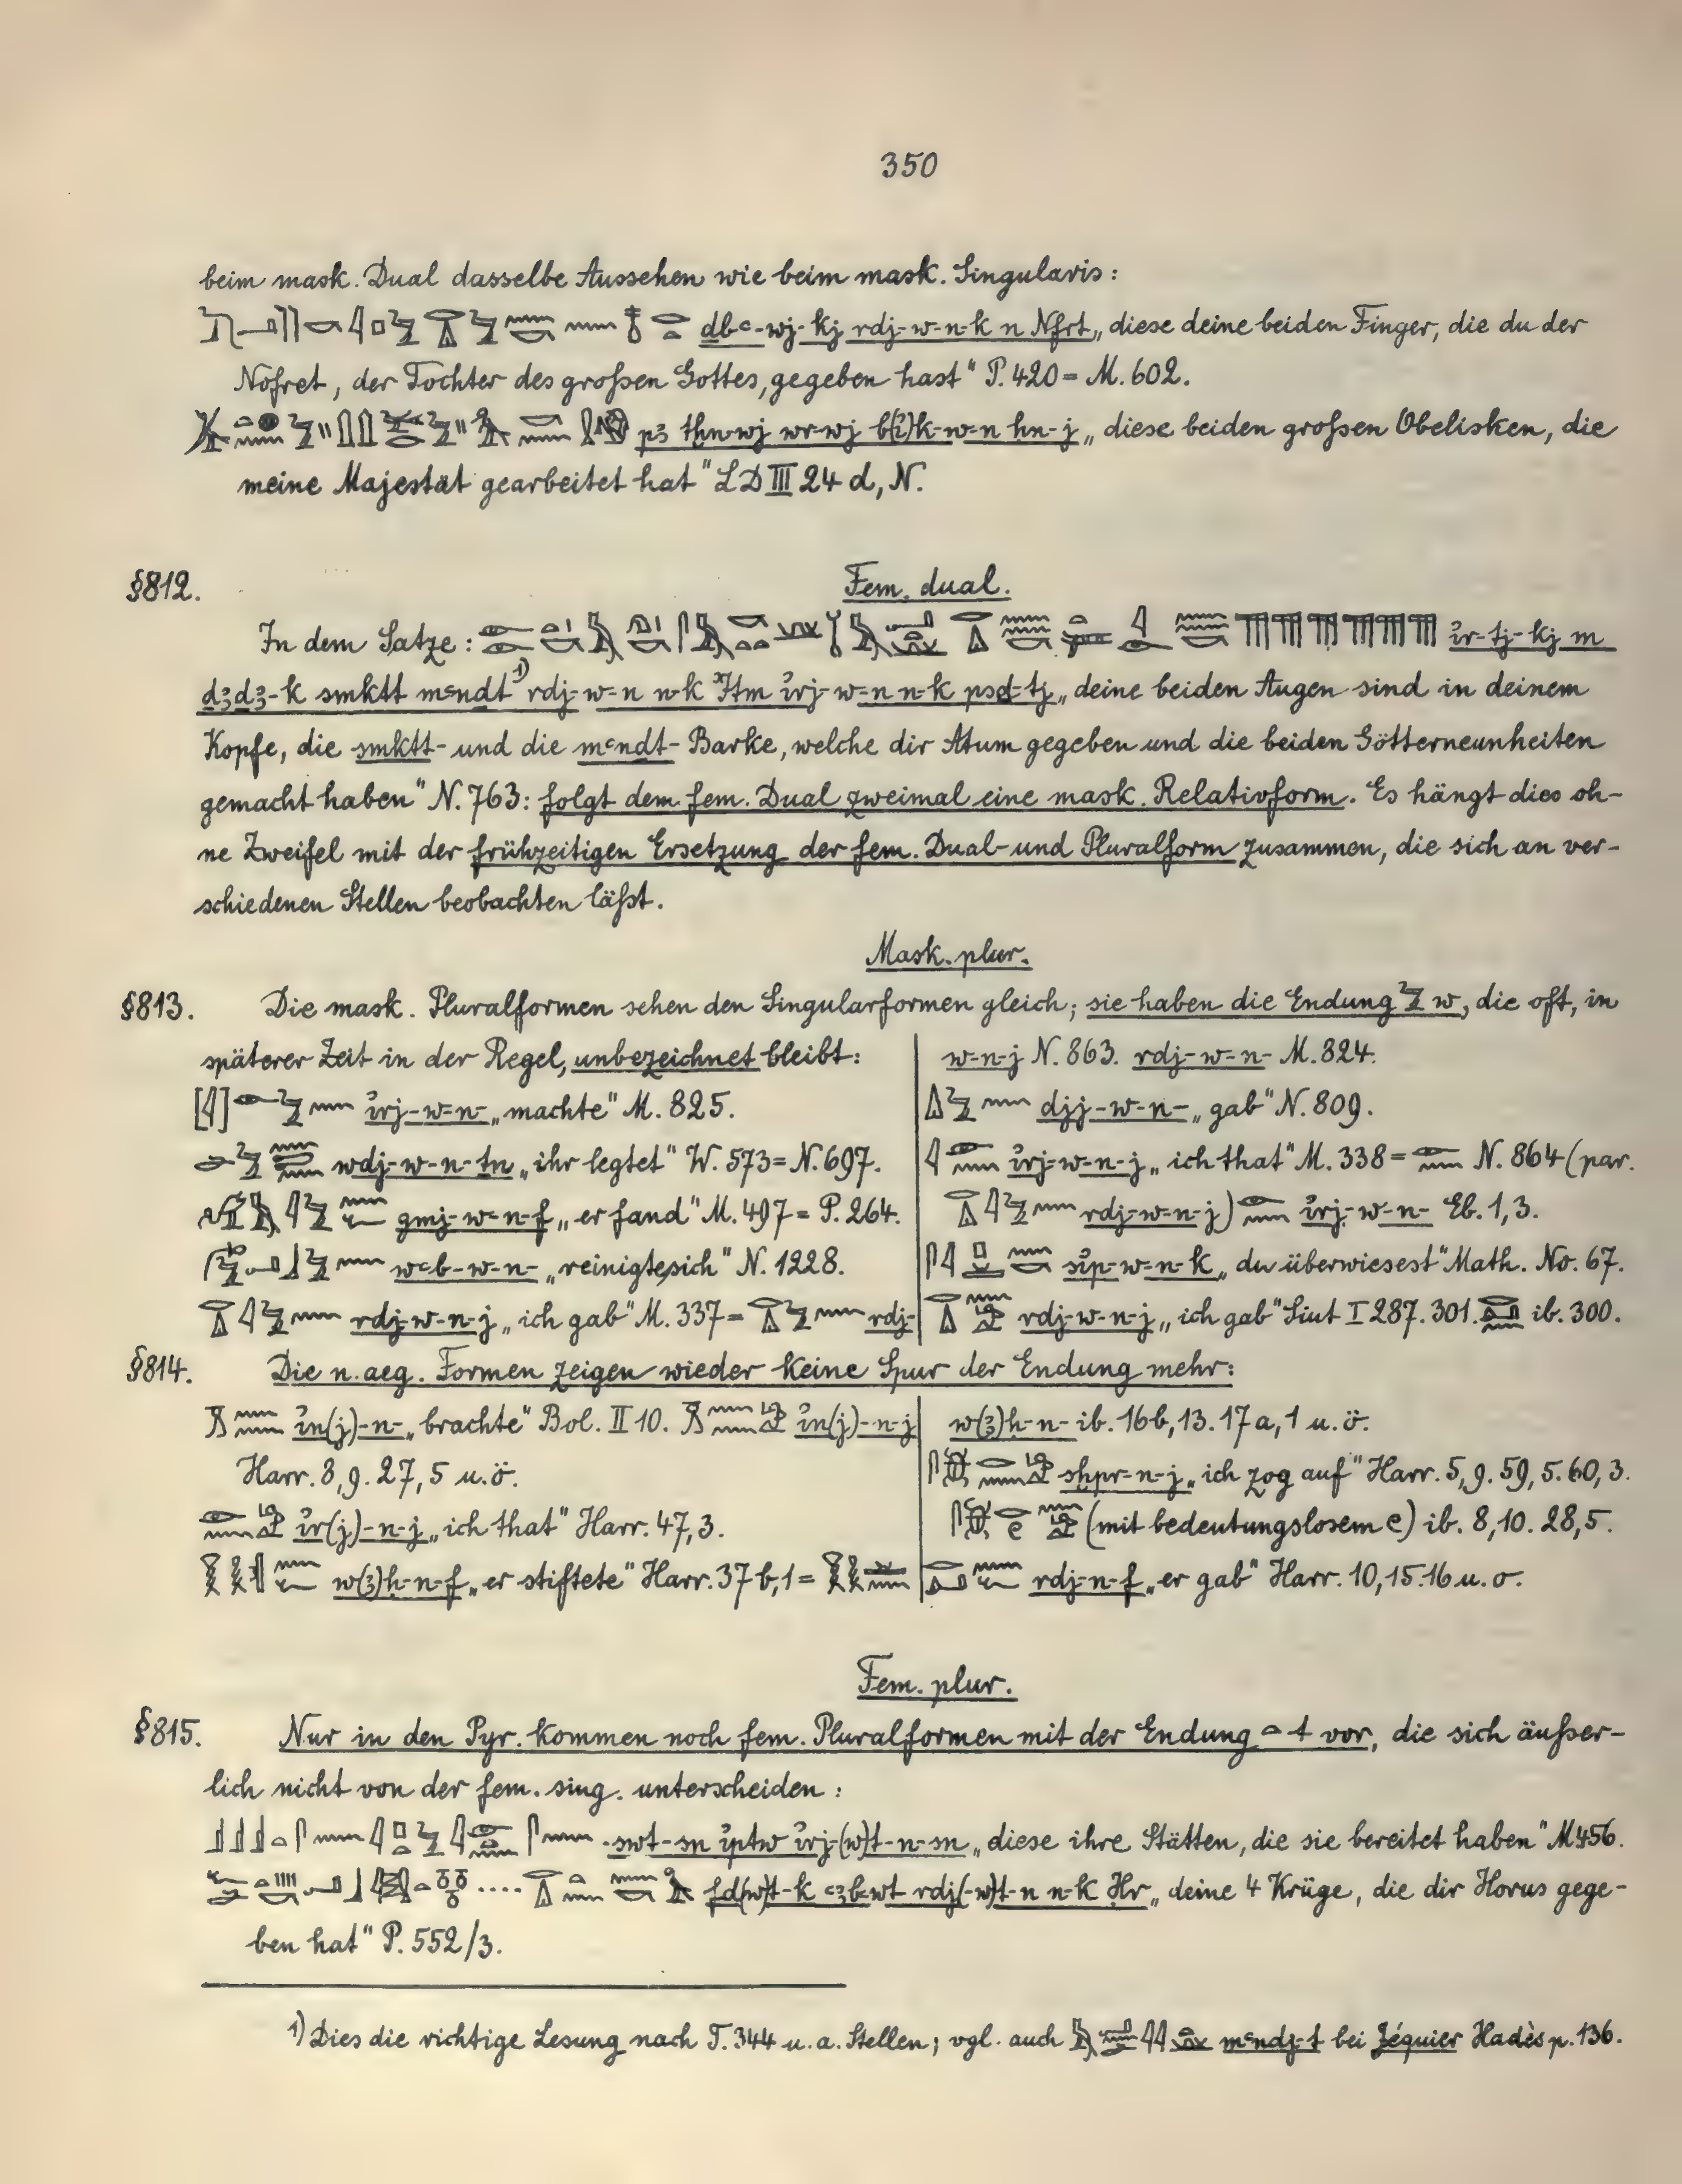 350
beim mask. Dual dasselbe Aussehen wie beim mask. Singularis:
dbꜥ-wj-kj rdj-w-n-k n Nfrt „diese deine beiden Finger, die du der
Nofret, der Tochter des großen Gottes, gegeben hast“ P. 420 = M. 602.
pꜣ tḫn-wj wr-wj b(ꜣ)k-w-n ḥn-j „diese beiden großen Obelisken, die
meine Majestät gearbeitet hat“ LD III 24 d, N.
§812. Fem. dual.
In dem Satze: ı͗r-tj-kj m
dꜣdꜣ-k smktt mꜥndt 1) rdj-w-n n-k Ꞽtm ı͗rj-w-n n-k psd-tj „deine beiden Augen sind in deinem
Kopfe, die smktt- und die mꜥndt-Barke, welche dir Atum gegeben und die beiden Götterneunheiten
gemacht haben“ N. 763: folgt dem fem. Dual zweimal eine mask. Relativform. Es hängt dies oh-
ne Zweifel mit der frühzeitigen Ersetzung der fem. Dual- und Pluralform zusammen, die sich an ver-
schiedenen Stellen beobachten läßt.
Mask. plur.
§813. Die mask. Pluralformen sehen den Singularformen gleich; sie haben die Endung w, die oft, in
späterer Zeit in der Regel, unbezeichnet bleibt:
[𓇋] ı͗rj-w-n- „machte“ M. 825.
wdj-w-n-tn „ihr legtet“ W. 573 = N. 697.
gmj-w-n-f „er fand“ M. 497 = P. 264.
wꜥb-w-n- „reinigte sich“ N. 1228.
rdj-w-n-j „ich gab“ M. 337 = rdj-
w-n-j N. 863. rdj-w-n- M. 824.
djj-w-n- „gab“ N. 809.
ı͗rj-w-n-j „ich that“ M. 338 = N. 864 (par.
rdj-w-n-j) ı͗rj-w-n- Eb. 1, 3.
sı͗p-w-n-k „du überwiesest“ Math. No. 67.
rdj-w-n-j „ich gab“ Siut I 287. 301. ib. 300.
§814. Die n. aeg. Formen zeigen wieder keine Spur der Endung mehr:
ı͗n(j)-n- „brachte“ Bol. II 10. ı͗n(j)-n-j
Harr. 8, 9. 27, 5 u. ö.
ı͗r(j)-n-j „ich that“ Harr. 47, 3.
w(ꜣ)ḥ-n-f „er stiftete“ Harr. 37 b, 1 =
w(ꜣ)ḥ-n- ib. 16b, 13. 17a, 1 u. ö.
sḫpr-n-j „ich zog auf“ Harr. 5, 9. 59, 5. 60, 3.
(mit bedeutungslosem e) ib. 8, 10. 28, 5.
rdj-n-f „er gab“ Harr. 10, 15. 16 u. o.
Fem. plur.
§815. Nur in den Pyr. kommen noch fem. Pluralformen mit der Endung 𓏏 t vor, die sich äußer-
lich nicht von der fem. sing. unterscheiden:
swt-sn ı͗ptw ı͗rj-(w)t-n-sn „diese ihre Stätten, die sie bereitet haben“ M 456.
.... fd(w)t-k ꜥꜣbwt rdj(-w)t-n n-k Ḥr „deine 4 Krüge, die dir Horus gege-
ben hat“ P. 552/3.
1) Dies die richtige Lesung nach T. 344 u. a. Stellen; vgl. auch mꜥndj-t bei Jéquier Hadès p. 136.